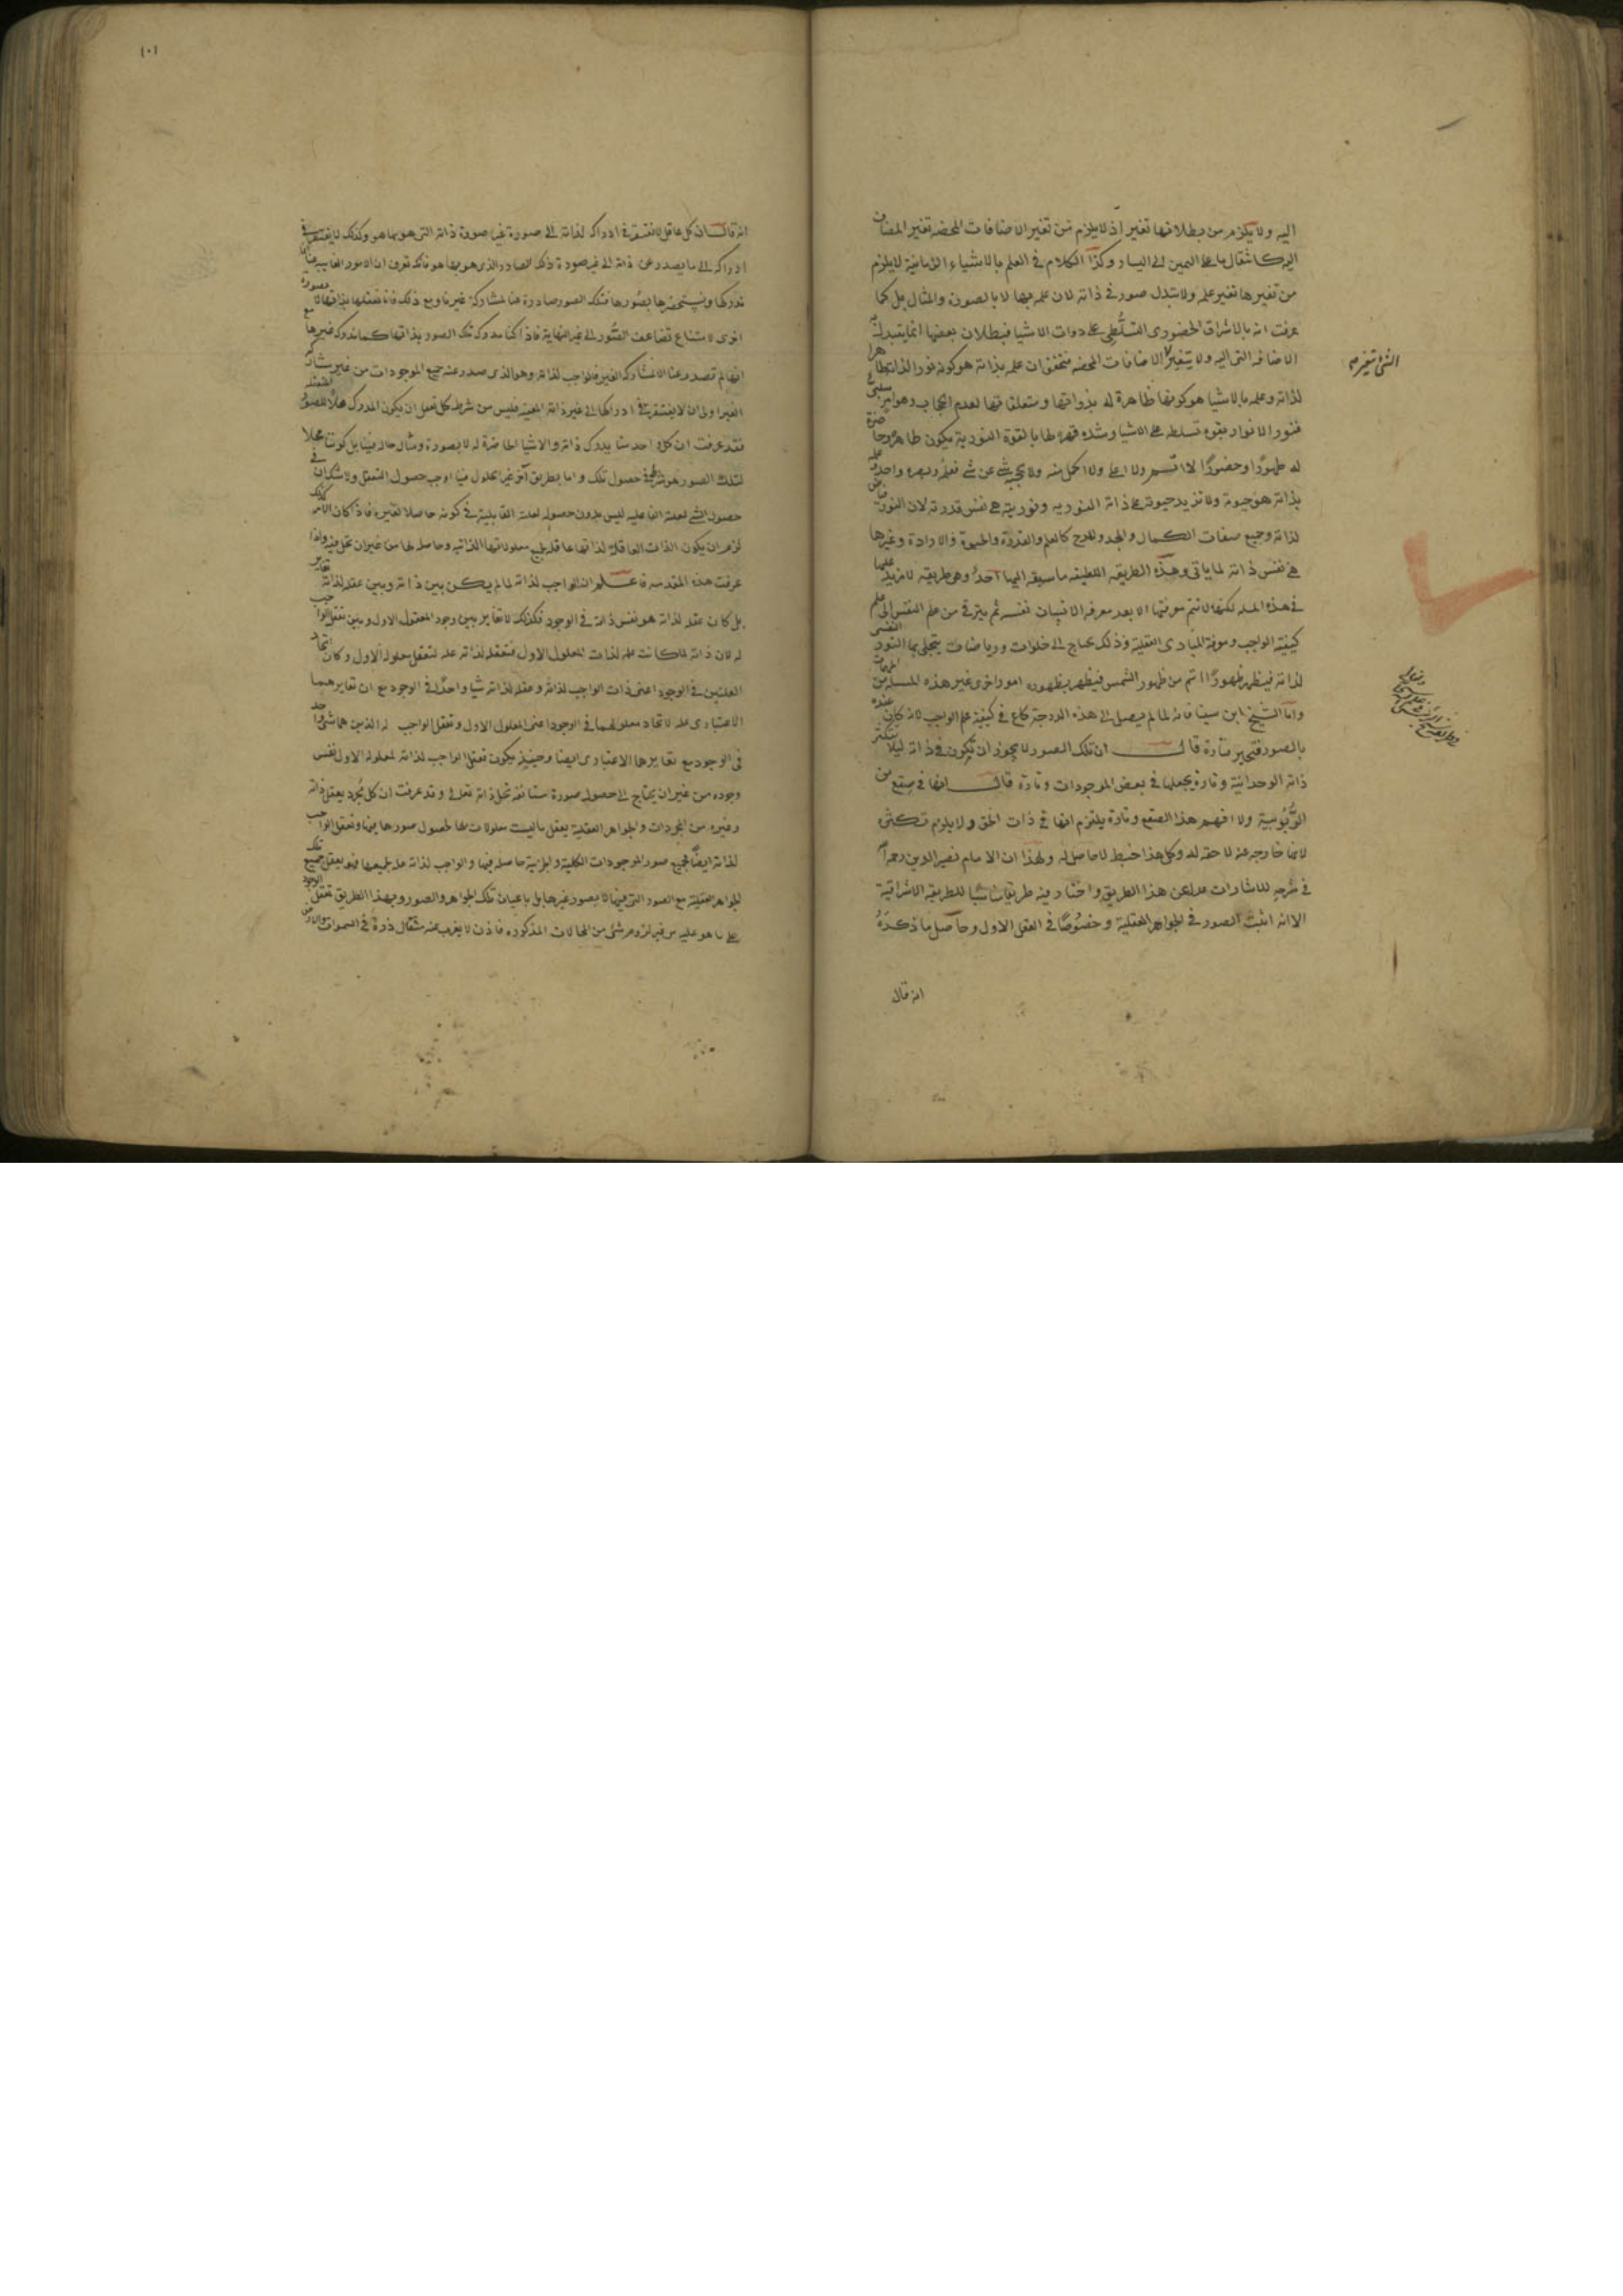 اليه ولا يلزم من بطلانها تغير اذ لا يلزم من تغير الاضافات المحضه تغير المضاف
اليه كانتقال ما على اليمين الى اليسار وكذا الكلام في العلم بالاشياء الزمانية لا يلزم
من تغيرها تغير علمه ولا تبدل صور في ذاته لان علمه بها لا بالصورة والمثال بل كما
عرفت انه بالاشراق الحضورى التسلطى على ذوات الاشيا فبطلان بعضها انما يتبدل به
الاضافه التى اليه ولا يتغير الاضافات المحضه فتحقق ان علمه بذاته هو كونه نورا لذاته ظاهرا
لذاته وعلمه بالاشيا هو كونها ظاهرة له بذواتها ومتعلقاتها لعدم الحجاب وهو امر سلبى
فنور الانوار بقوة تسلطه على الاشيا وشدة قهره لها بالقوة النورية يكون ظاهرة حاضرة
له ظهورا وحضورا لا اتم ولا اعلى ولا اكمل منه ولا يحجبه شى عن شى فعلمه وبصره واحد وعلمه
بذاته هو حيوته ولا تزيد حيوته على ذاته النوريه ونوريته هى نفس قدرته لان النور فياض
لذاته وجميع صفات الكمال والمجد والمدح كالعلم والقدرة والحيوة والارادة وغيرها
هى نفس ذاته لما ياتى وهذه الطريقه اللطيفه ما سبقه اليها احد وهى طريقه لا مزيد عليها
في هذه المسله لكنها لا تتم معرفتها الا بعد معرفه الانسان نفسه ثم يترقى من علم النفس الى علم
كيفية الواجب ومعرفة المبادى العقلية وذلك يحتاج الى خلوات ورياضات يتجلى بها النور النفسى
لذاته فيظهر ظهورا اتم من ظهور الشمس فيظهر بظهوره امور اخرى غير هذه المسله من المهمات
واما الشيخ ابن سينا فانه لما لم يصل الى هذه الدرجة كاع في كيفية علم الواجب لانه كان عنده
بالصور فتحير فتارة قال ان تلك الصور لا يجوز ان تكون في ذاته ليلا يتكثر
ذاته الوحدانية وتارة يجعلها في بعض الموجودات وتارة قال انها في صقع من
الربوبية ولا افهم هذا الصقع وتارة يلتزم انها في ذات الحق ولا يلزم تكثره
لانها خارجه عنه لاحقه له وكل هذا خبط لا حاصل له ولهذا ان الامام نصير الدين رحمه الله
في شرحه للاشارات عدل عن هذا الطريق واختار فيه طريقا مناسبا للطريقه الاشراقية
الا انه اثبت الصور في الجواهر العقلية وخصوصا في العقل الاول وحاصل ما ذكره
انه قال
١٠١
انه قال ان كل عاقل لا يفتقر في ادراكه لذاته الى صورة غير صورة ذاته التى هو بها هو وكذلك لا يفتقر في
ادراكه الى ما يصدر عن ذاته الى غير صورة ذلك الصادر الذى هو بها هو فانك تعرف ان الامور الغايبه عنا
ندركها ونستحضرها بصورها فتلك الصور صادرة عنا لمشاركة غيرنا ومع ذلك فانا نعقلها بذاتها لا بصورة
اخرى لامتناع تضاعف الصور الى غير النهاية فاذا كنا ندرك تلك الصور بذاتها كما ندرك غيرها مع
انها لم تصدر عنا الا لمشاركة الغير فالواجب لذاته وهو الذى صدر عنه جميع الموجودات من غير مشاركة
الغير اولى ان لا يفتقر في ادراكها الى غير ذاته المعينه فليس من شرط كل تعقل ان يكون المدرك محلا للصورة
فقد عرفت ان كل واحد منا يدرك ذاته والاشيا الحاضرة له لا بصورة ومثال حال فينا بل كوننا محلا
لتلك الصور هو شرط في حصول تلك واما بطريق آخر غير الحلول فينا اوجب حصول التعقل ولا شك ان في
حصول الشى لعلته الفاعليه ليس بدون حصوله لعلته القابلية في كونه حاصلا لغيره فاذا كان الامر كذلك
لزم ان يكون الذات العاقلة لذاتها عاقله لجميع معلولاتها الذاتيه وحاصله لها من غير ان تحل فيه واذا
عرفت هذه المقدمه فاعلم ان الواجب لذاته لما لم يكن بين ذاته وبين عقله لذاته تغاير
بل كان عقله لذاته هو نفس ذاته في الوجود فكذلك لا تغاير بين وجود المعقول الاول وبين تعقل الواجب
له لان ذاته لما كانت عله لذات المعلول الاول فتعقله لذاته عله لتعقل معلوله الاول وكان اتحاد
العلتين في الوجود اعنى ذات الواجب لذاته وعقله لذاته شيا واحدا في الوجود مع ان تغايرهما
الاعتبارى عله لاتحاد معلولهما في الوجود اعنى المعلول الاول وتعقل الواجب له الذين هما شى واحد
فى الوجود مع تغايرها الاعتبارى ايضا وحينئذ يكون تعقل الواجب لذاته لمعلوله الاول نفس
وجوده من غير ان يحتاج الى حصول صورة مستانفه تحل ذاته تعالى وقد عرفت ان كل مجرد يعقل ذاته
وغيره من المجردات والجواهر العقلية يعقل ما ليست معلولات لها لحصول صورها فيها وتعقل الواجب
لذاته ايضا فجميع صور الموجودات الكلية والجزئية حاصله فيها والواجب لذاته عله لجميعها فهو يعقل جميع تلك
الجواهر العقلية مع الصور التى فيها لا بصور غيرها بل باعيان تلك الجواهر والصور وبهذا الطريق تعقل الوجود
على ما هو عليه من غير لزوم شى من المحالات المذكوره فاذن لا يعزب عنه مثقال ذرة في السموات والارض